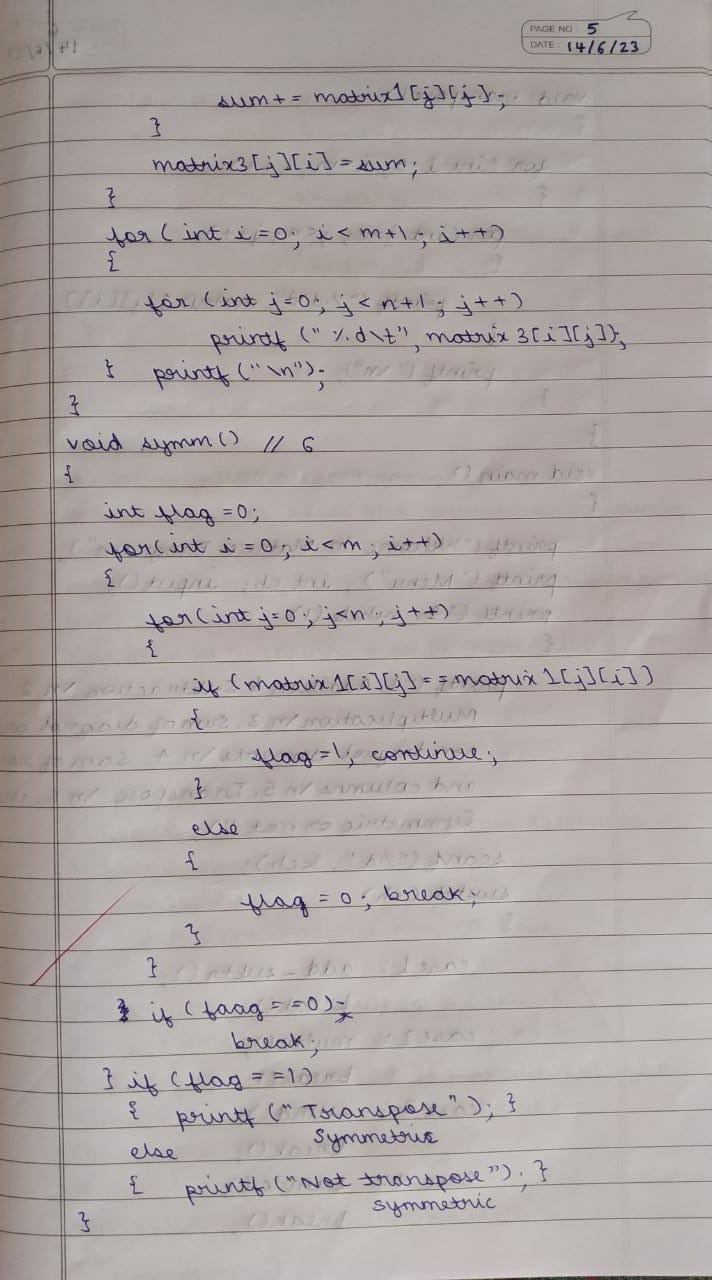 PAGE NO 5
DATE 14/6/23
sum+= matrix1[j][j];
}
matrix3[j][i]=sum;
}
for( int i=0; i<m+1; i++)
{
for (int j=0; j<n+1; j++)
printf ("%d\t", matrix3[i][j]);
} printf("\n");
}
void symm() // 6
{
int flag=0;
for(int i=0; i<m; i++)
{
for(int j=0; j<n; j++)
{
if (matrix1[i][j]==matrix1[j][i])
{
flag=1; continue;
}
else
{
flag = 0; break;
}
}
if (faag==0);
break;
} if (flag==1)
{ printf ("Transpose"); }
Symmetric
else
{ printf("Not transpose"); }
symmetric
}